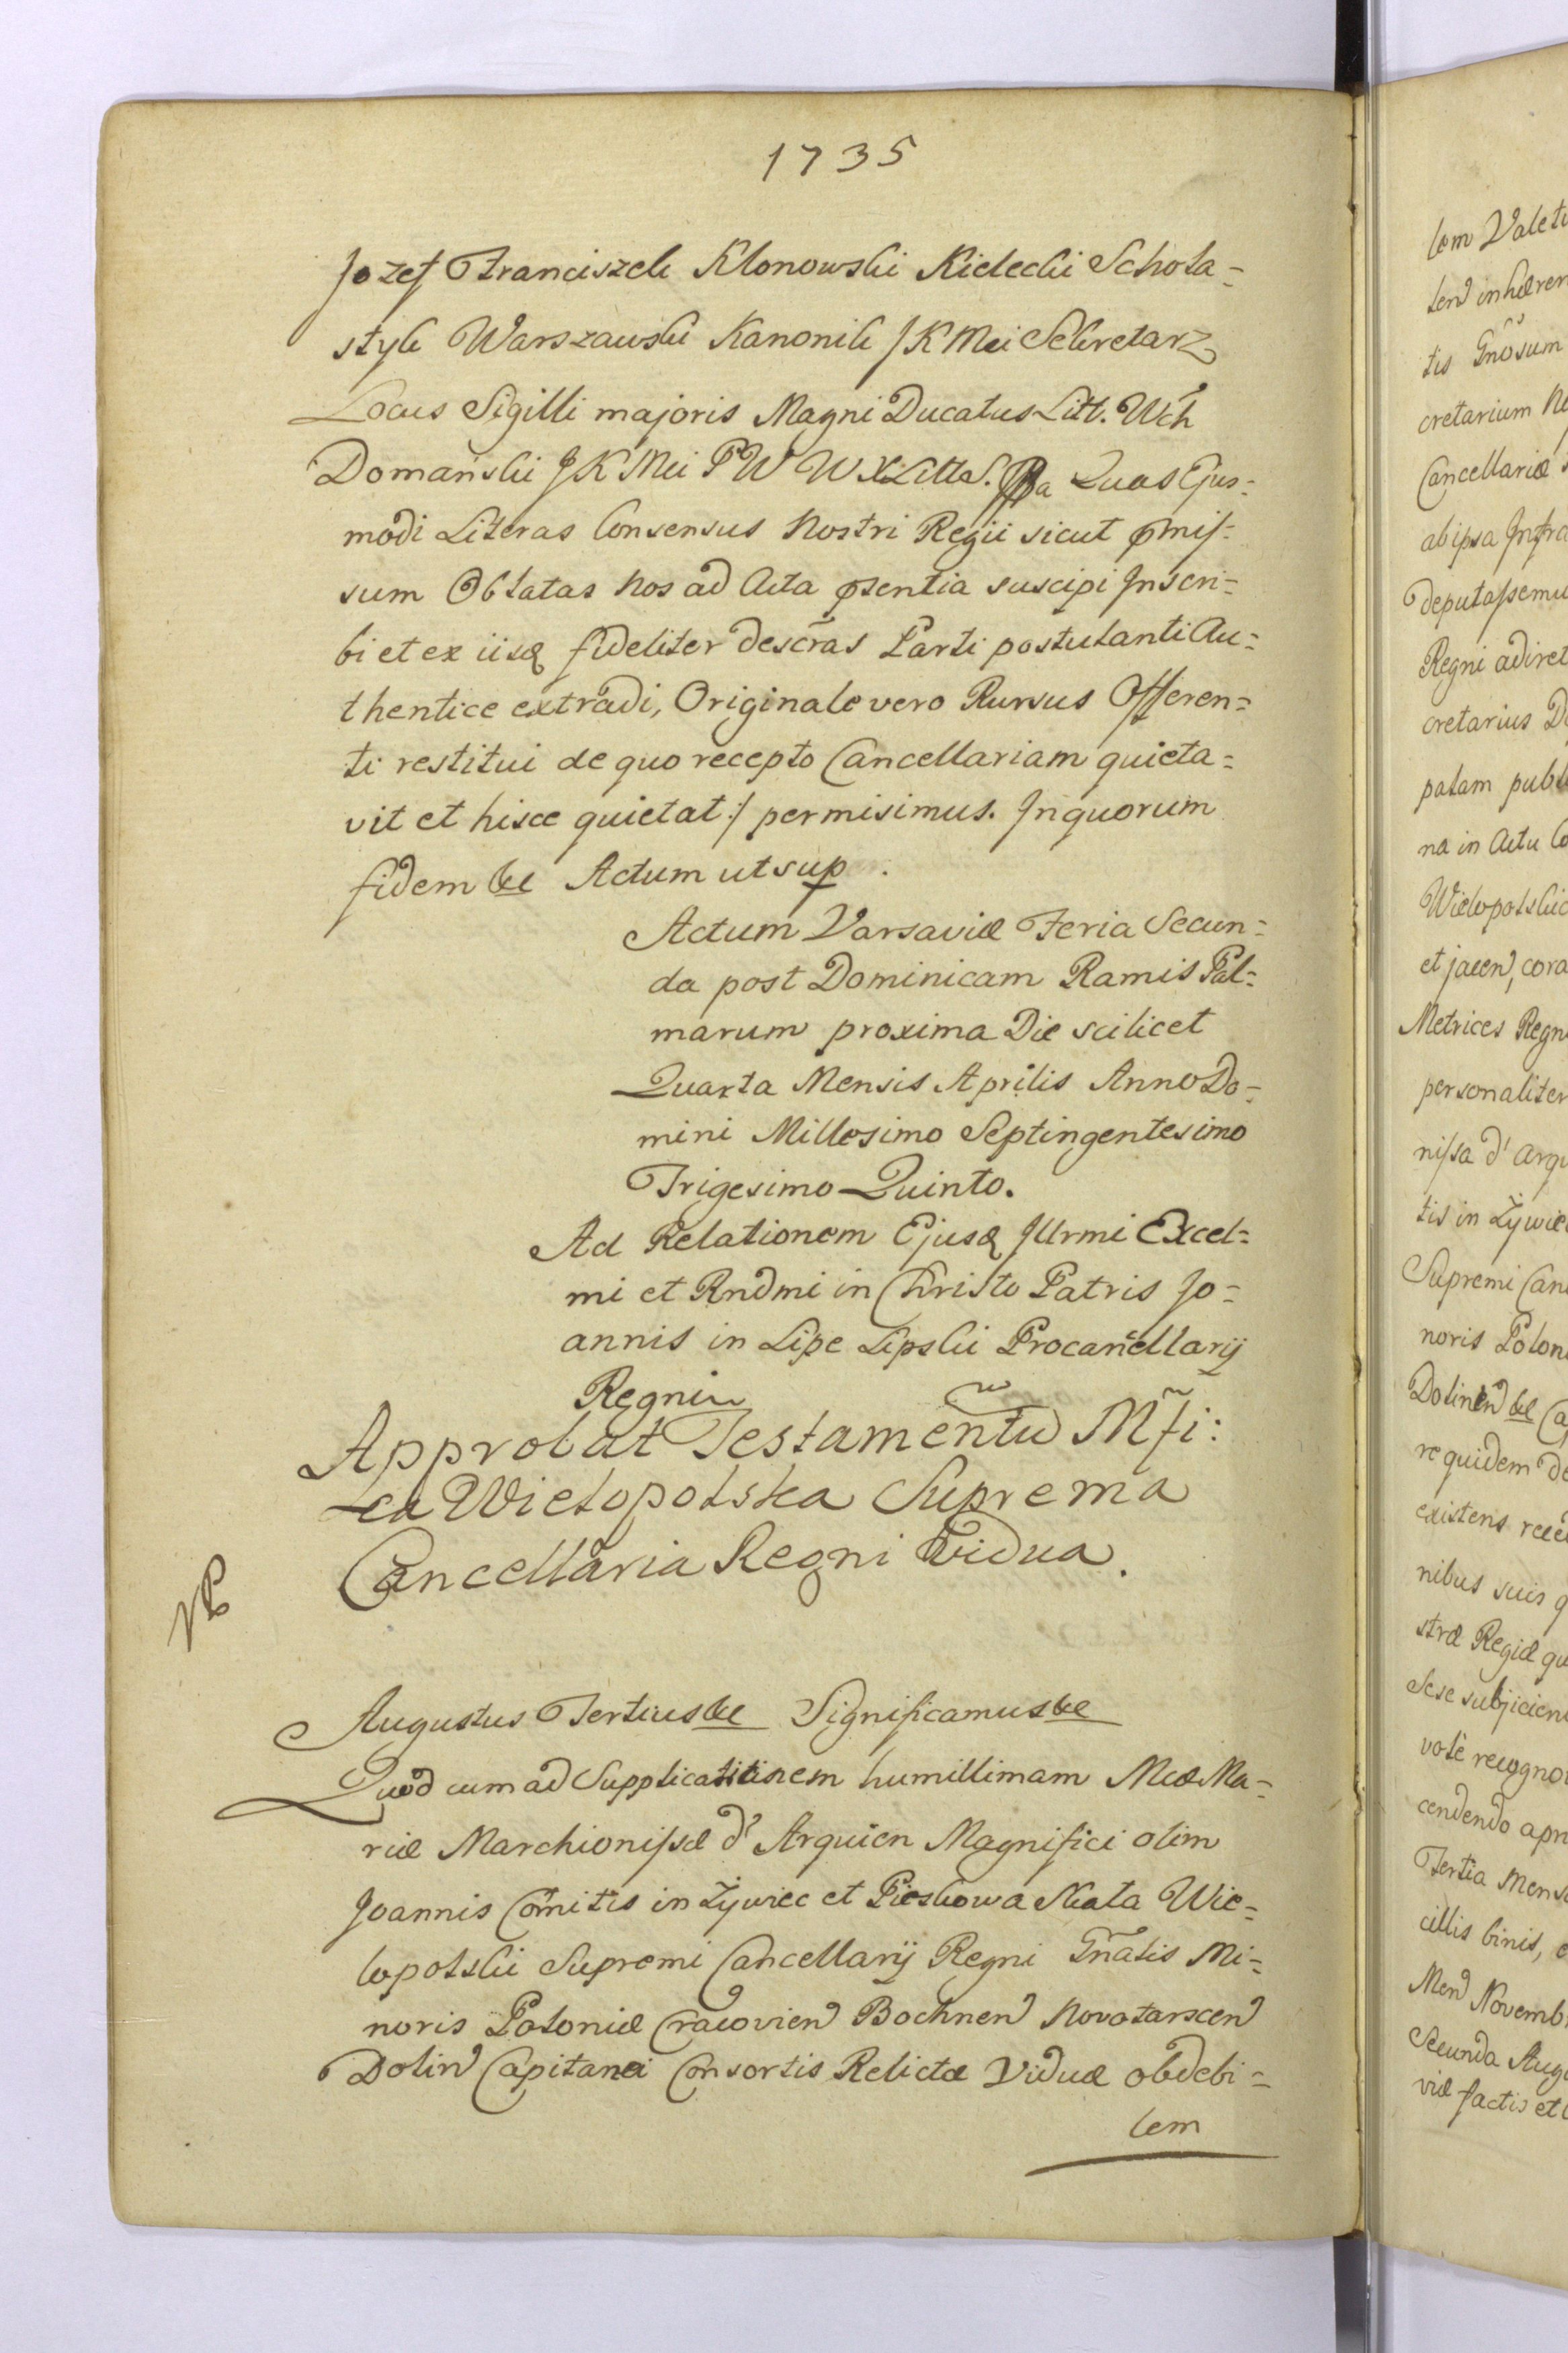 1735
Jozef Franciszek Klonowski Kielecki Schola=
styk Warszawski Kanonik JKMci Sekretarz
Locus Sigilli majoris Magni Ducatus Litt. Wch
Domański JKMci P W W XLitt S. Quas Ejus=
modi Literas Consensus Nostri Regii sicut pmis=
sum Oblatas Nos ad Acta psentia suscipi Inscri=
bi et ex iisq fideliter descras Parti postulanti Au=
thentice extradi, Originale vero Rursus Offeren=
ti restitui de quo recepto Cancellariam quieta=
vit et hisce quietat:/ permisimus. In quorum
fidem &c Actum ut sup.
Actum Varsaviæ Feria Secun=
da post Dominicam Ramis Pal=
marum proxima Die scilicet
Quarta Mensis Aprilis Anno Do=
mini Millesimo Septingentesimo
Trigesimo Quinto.
Ad Relationem Ejusq Illrmi Excel=
mi et Rndmi in Christo Patris Jo=
annis in Lipe Lipski Procancellarij
Regni
Approbat Testamentu Mfi:
ca Wielopolska Suprema
Cancellaria Regni Vidua.
Augustus Tertius &c Significamus &c
Quod cum ad Supplicationem humillimam Mcæ Ma=
riæ Marchionissæ d' Arquien Magnifici olim
Joannis Comitis in Żywiec et Pieskowa Skała Wie=
lopolski Supremi Cancellarij Regni Gnalis Mi=
noris Poloniæ Cracovien Bochnen Novotarscen
Dolin Capitanei Consortis Relictæ Viduæ ob debi=
lem
lem Valetu
ten inhæren
tis Gnosum
cretarium N
Cancellariæ
ab ipsa Infra
deputassemu
Regni adiret
cretarius D
palam publ
na in Actu Co
Wielopolski
et jacen, cora
Metrices Regn
personaliter
nissa d' Arqu
tis in Żywie
Supremi Can
noris Polon
Dolinen &c Ca
re quidem de
existens rece
nibus suis q
stræ Regiæ qu
Sese subjicien
vote recogno
cendendo apr
Tertia Mens
cillis binis, e
Men Novemb
Secunda Aug
viæ factis et